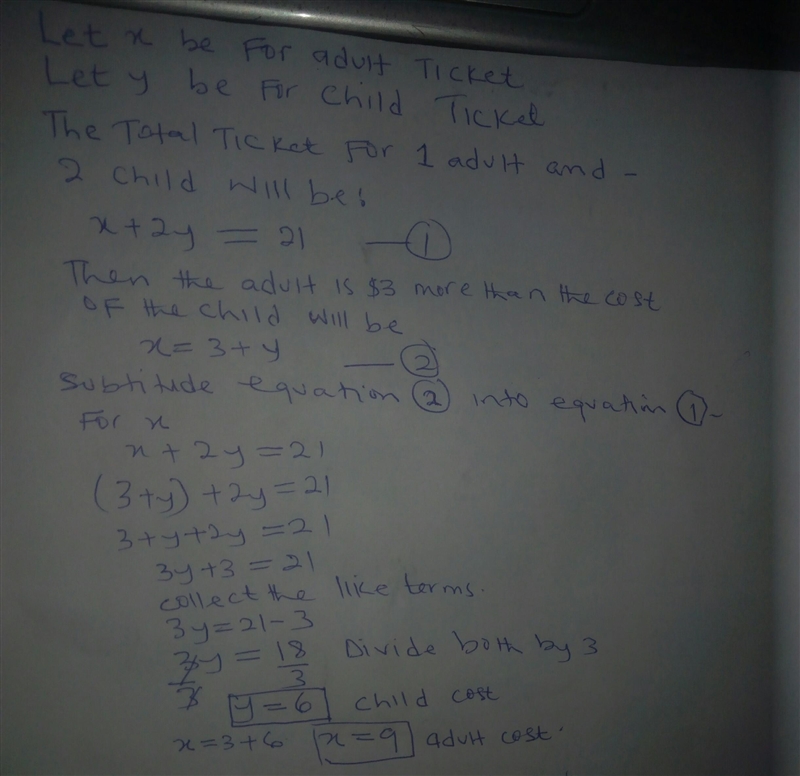 Let x be For adult Ticket
Let y be For child Ticket
The Total Ticket For 1 adult and -
2 child will be:
x + 2y = 21 — ①
Then the adult is $3 more than the cost
OF the child will be
x = 3 + y — ②
Subtitude equation ② into equation ① -
For x
x + 2y = 21
(3+y) + 2y = 21
3+y+2y = 21
3y+3 = 21
collect the like terms.
3y = 21 - 3
3y/3 = 18/3 Divide both by 3
y = 6 child cost
x = 3+6 x = 9 adult cost.